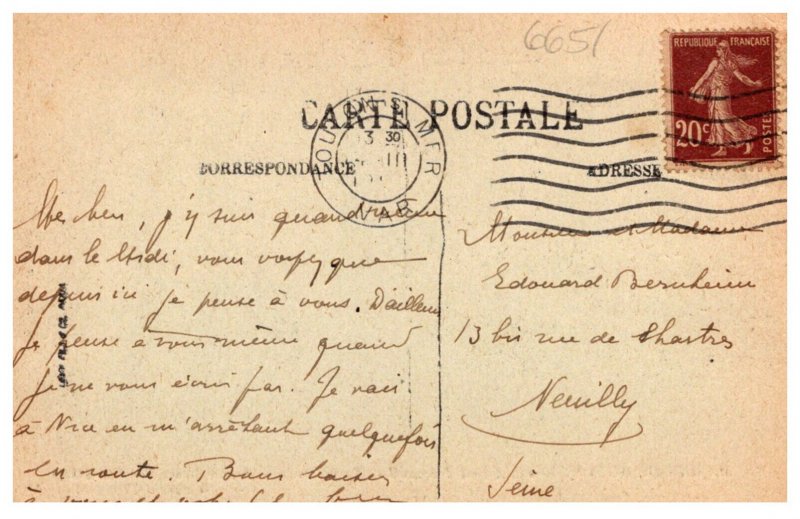 6651
RÉPUBLIQUE FRANÇAISE
20c
POSTES
CARTE POSTALE
TOULON S MER
3 30
VAR
CORRESPONDANCE
ADRESSE
j'y suis quand même
dans le Midi, vous voyez que
depuis ici je pense à vous. D'ailleurs
je pense à vous même quand
je ne vous écris pas. Je vais
à Nice en m'arrêtant quelquefois
en route. Bons baisers
à vous et
Monsieur et Madame
Edouard Bernheim
13 bis rue de Chartres
Neuilly
Seine